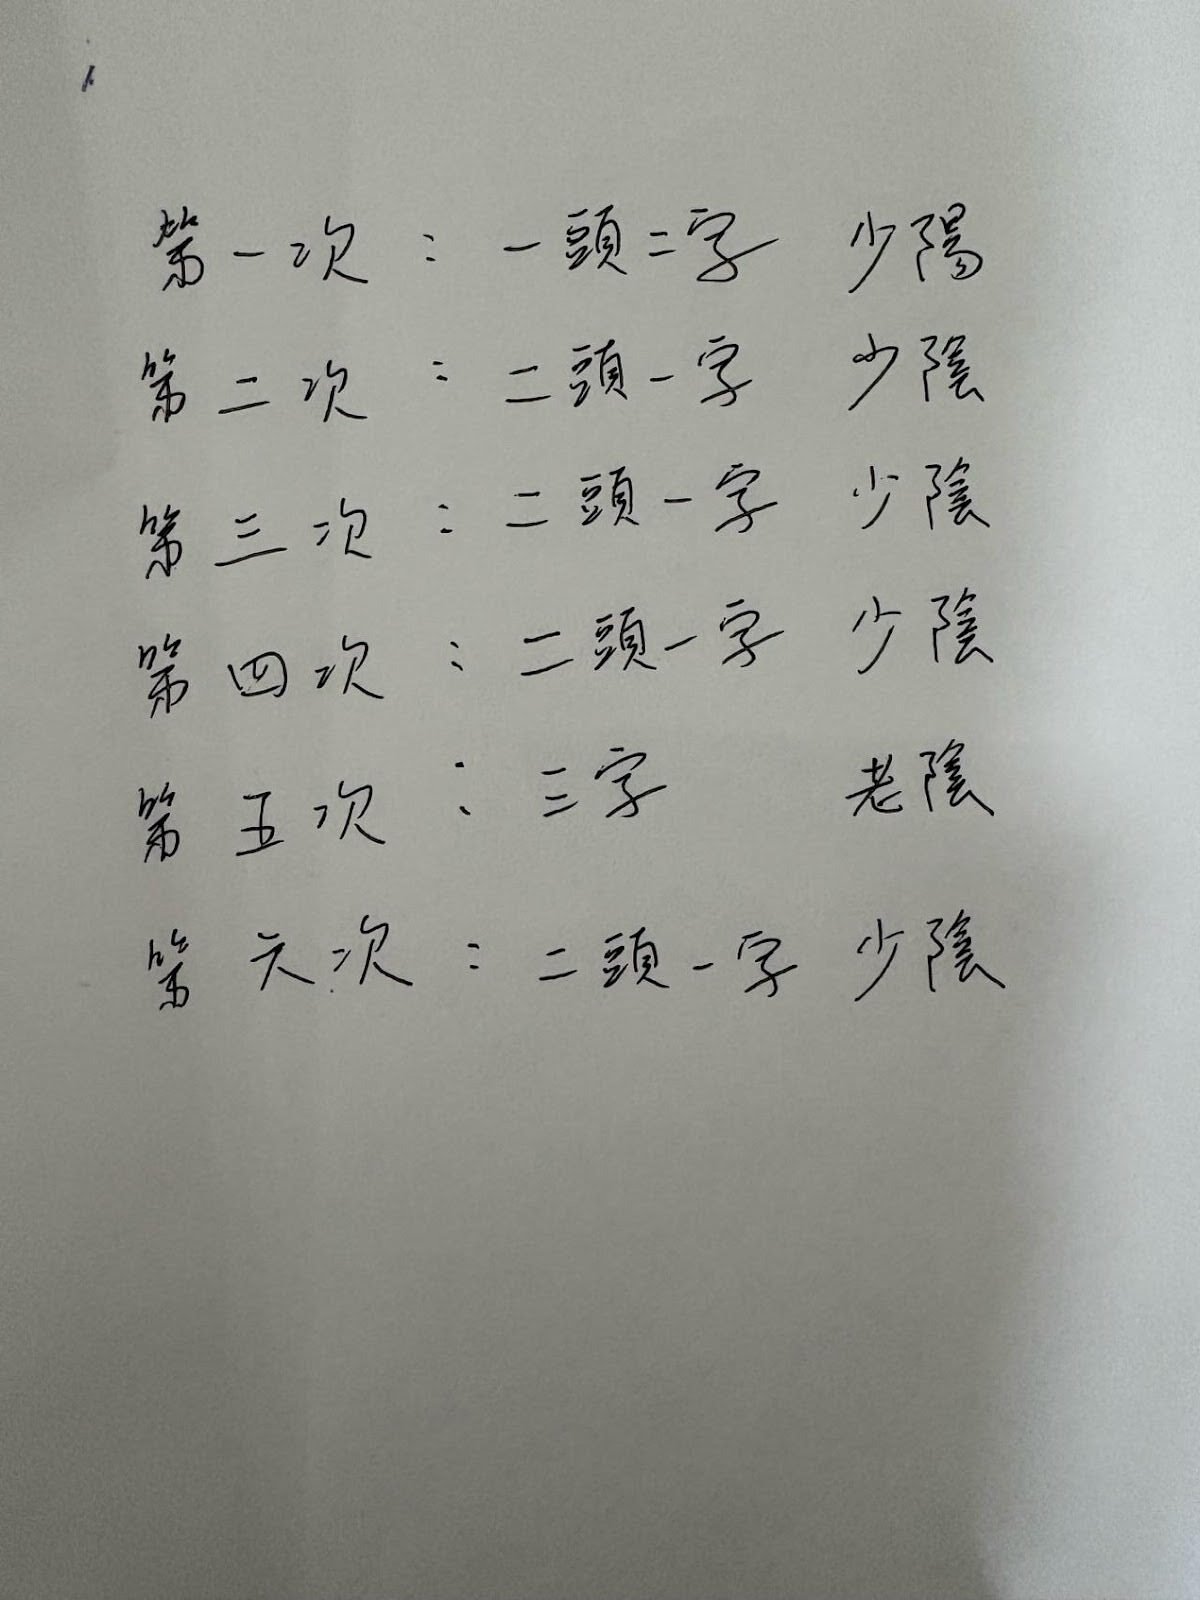 第一次：一頭二字 少陽
第二次：二頭一字 少陰
第三次：二頭一字 少陰
第四次：二頭一字 少陰
第五次：三字 老陰
第六次：二頭一字 少陰